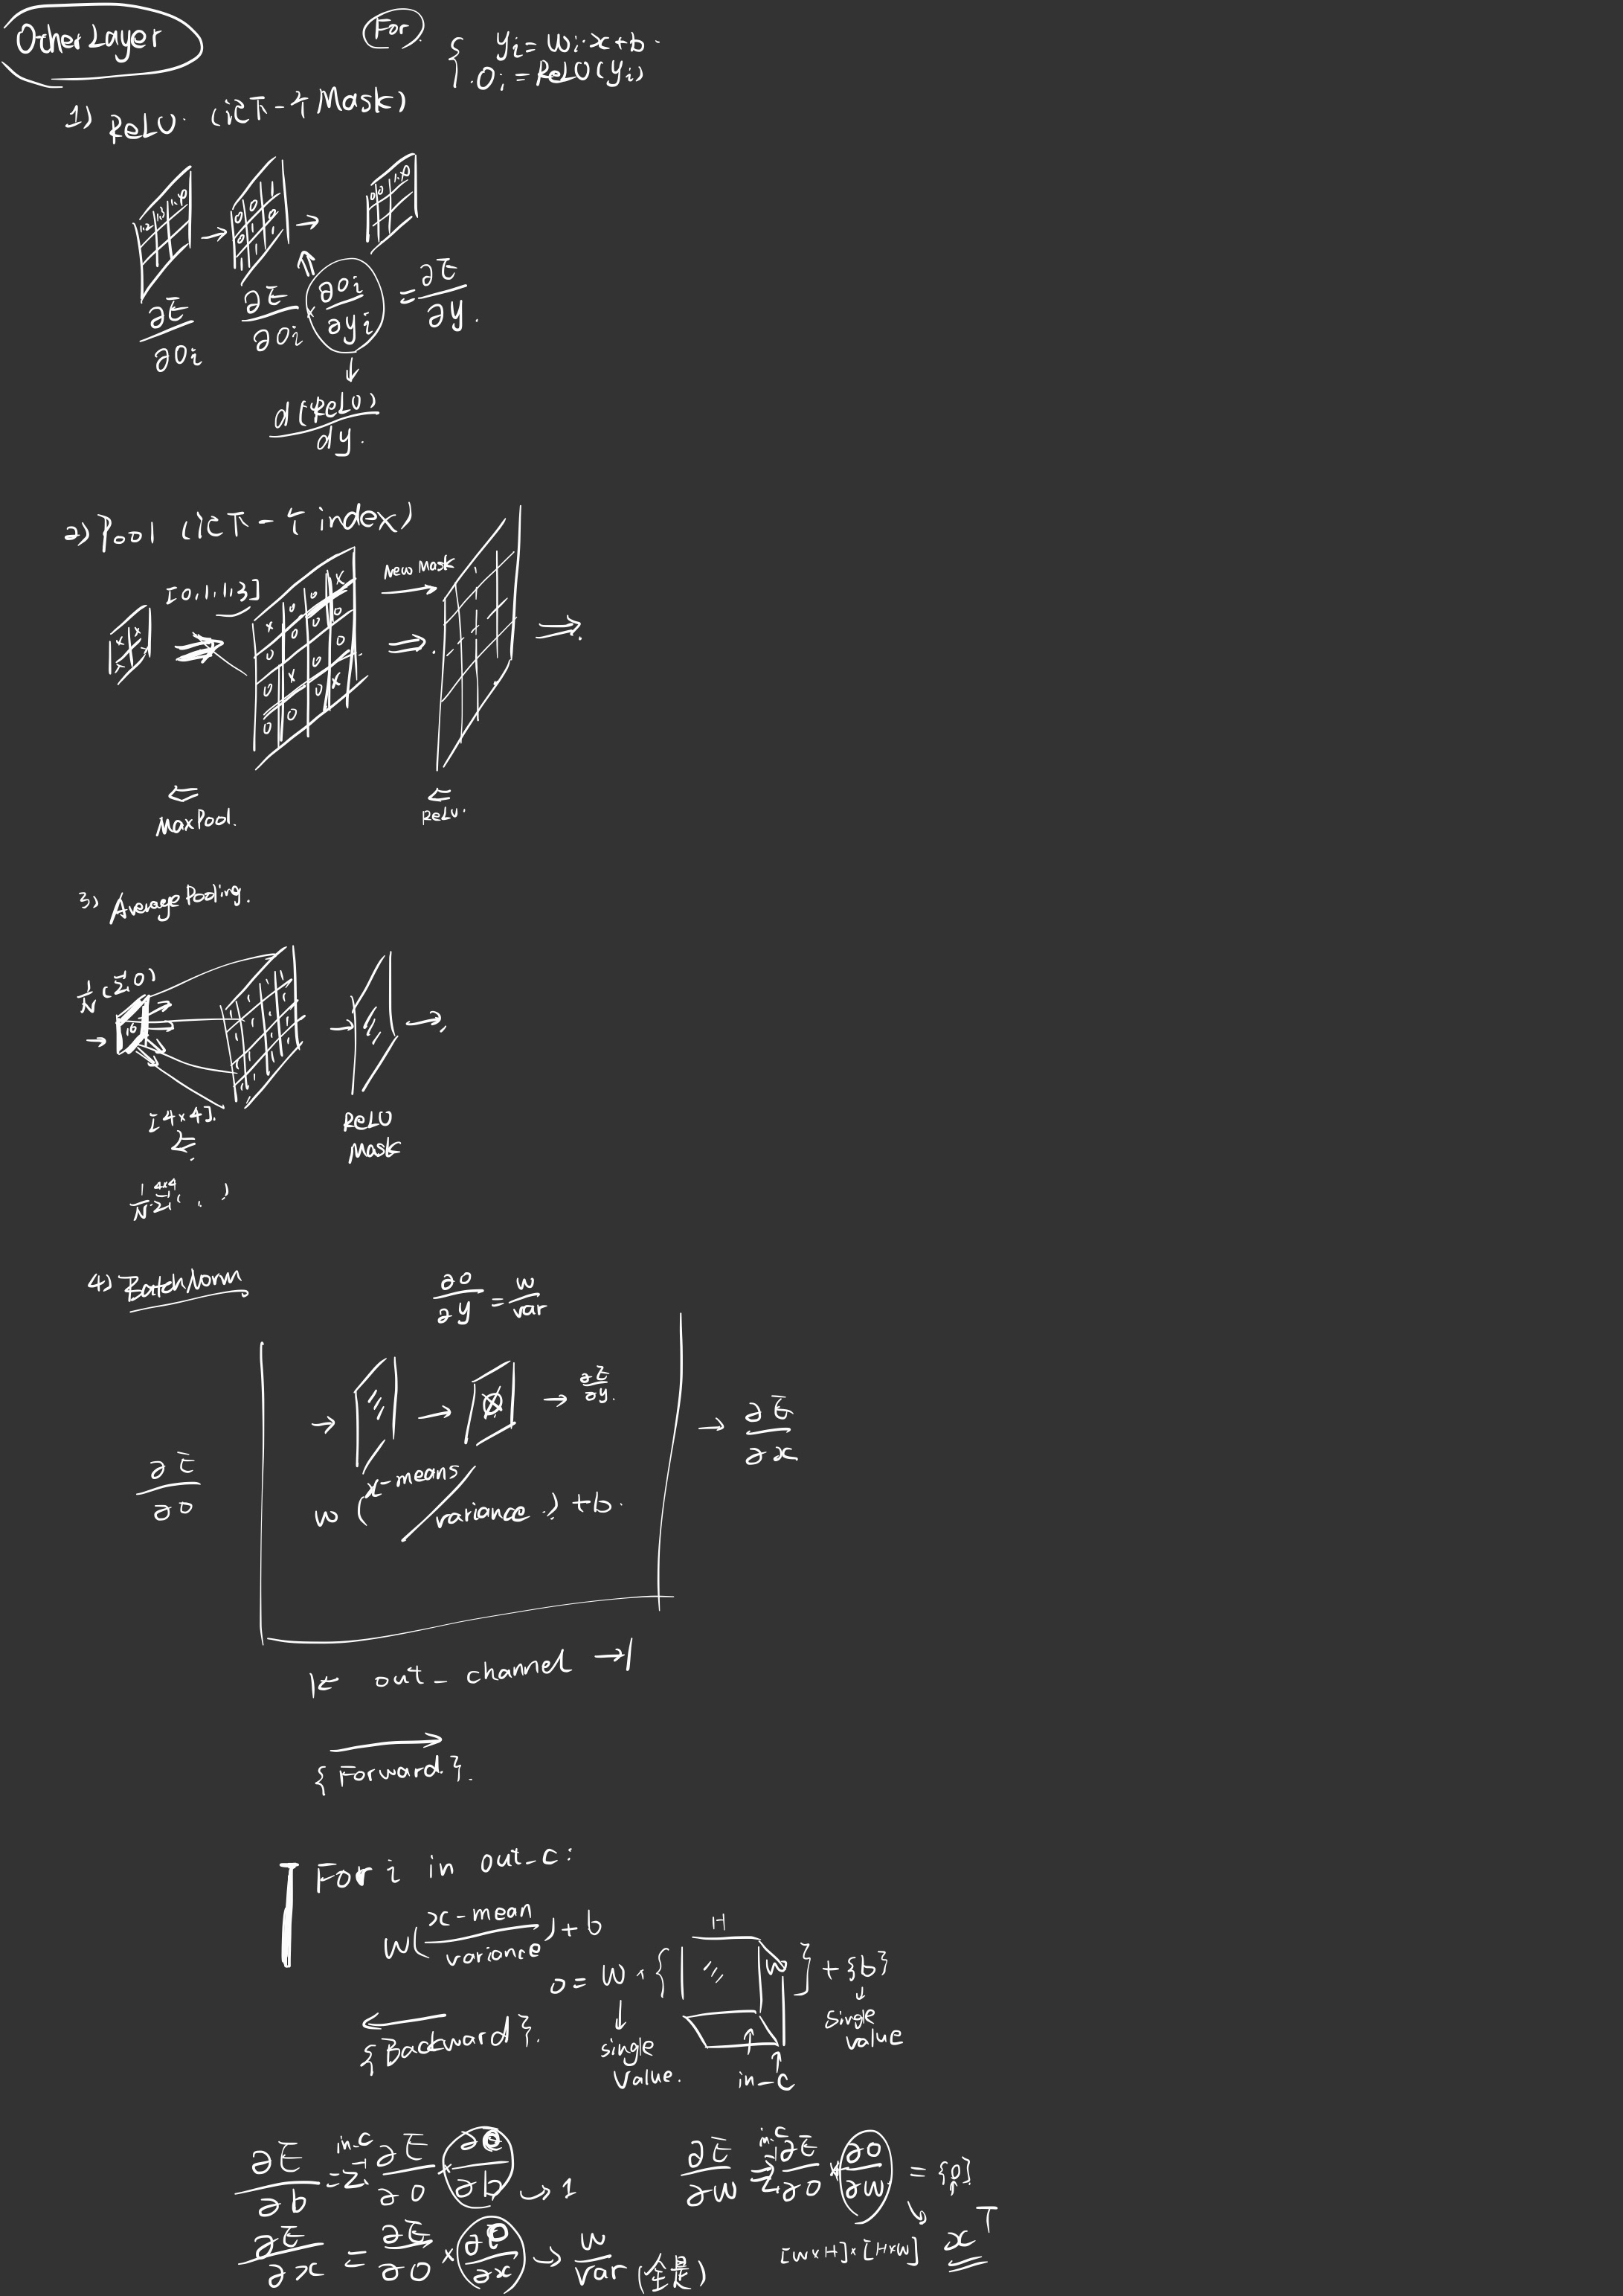 Other Layer
For.
{ yi = wi·x+b.
. Oi = ReLU(yi)
1) ReLU. (记下一个Mask)
1.2 1.3 1.4
0 0 1
0 1 0
0 0 1.4
∂E/∂Oi
∂E/∂Oi × ∂Oi/∂yi = ∂E/∂y.
d(ReLU)/dy.
2) Pool (记下一个index)
[0,1,1,3]
New Mask
MaxPool.
ReLU.
3) Average Pooling.
1/N (Σ0)
16
[4×4].
Σ
1/N Σ 4×4 ( . )
ReLU
Mask
4) Batch Norm
∂o/∂y = w/var
∂E/∂o
∂E/∂y.
∂E/∂x
w (x-means/variance.) + b.
out_channel
{Forward.}.
For i in out_c:
w(x-mean/variance) + b
o = W × { H W } + {b}
single
value.
single
value
in_c
{Backward}.
∂E/∂b = Σ in_c ∂E/∂o × ∂o/∂b → 1
∂E/∂w = Σ in_c ∂E/∂o × ∂o/∂w = {o}
∂E/∂x = ∂E/∂o × ∂o/∂x → w/var (全是)
[W×H]×[H×W] x^T